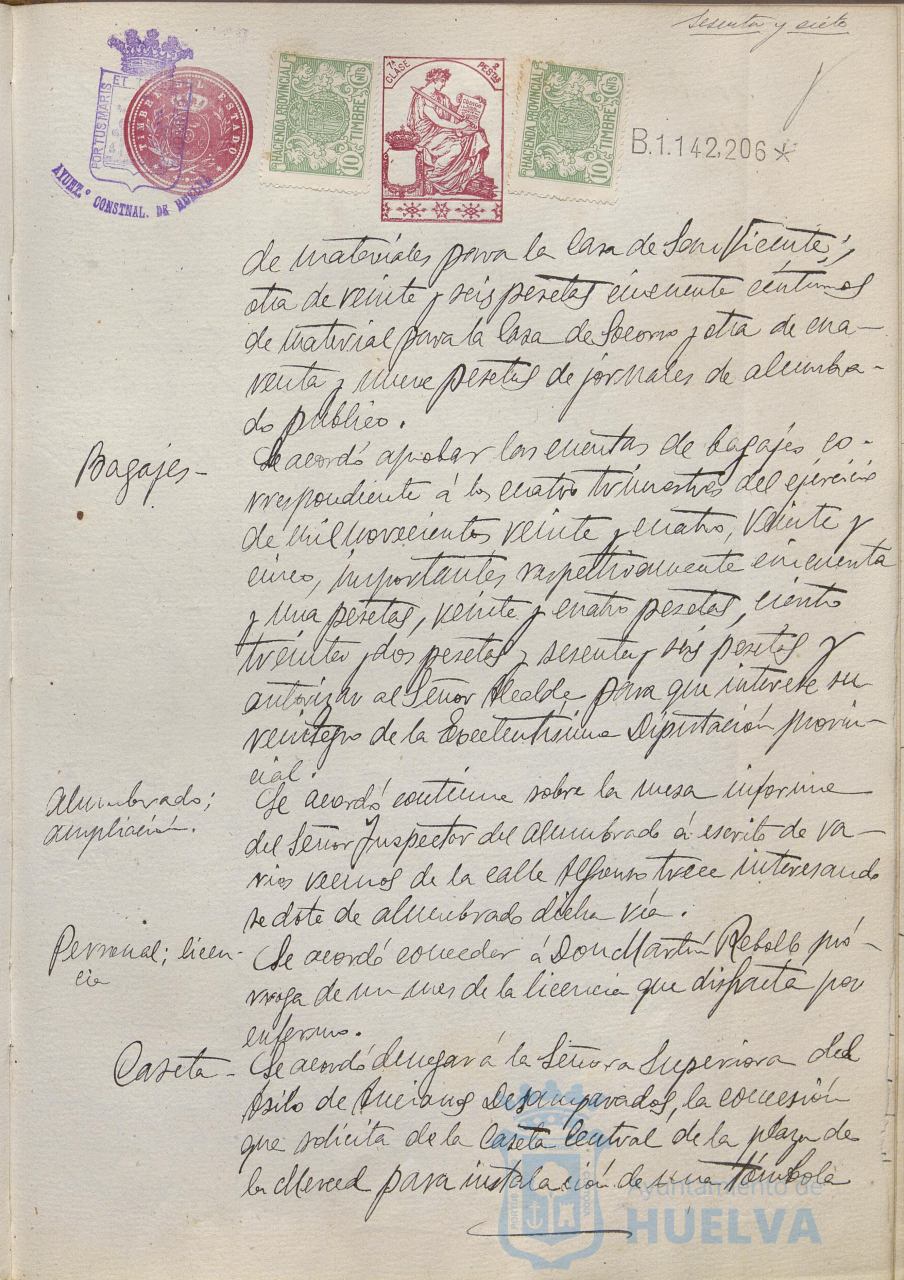 Sesenta y siete
PORTUS MARIS ET
TIMBRE DEL ESTADO
AYUNT.º CONSTNAL. DE HUELVA
HACIENDA PROVINCIAL
TIMBRE
10 CTS
7ª CLASE
2 PESTAS
HACIENDA PROVINCIAL
TIMBRE
10 CTS
B.1.142,206 *
de materiales para la Casa de San Vicente;
otra de veinte y seis pesetas cincuenta céntimos
de material para la Casa de Socorro y otra de cua-
renta y nueve pesetas de jornales de alumbra-
do público.
Bagajes-
Se acordó aprobar las cuentas de bagajes co-
rrespondiente á los cuatro trimestres del ejercicio
de mil novecientos veinte y cuatro, veinte y
cinco, importantes respectivamente cincuenta
y una pesetas, veinte y cuatro pesetas, ciento
treinta y dos pesetas y sesenta y seis pesetas y
autorizar al Señor Alcalde, para que interese su
reintegro de la Excelentísima Diputación provin-
cial.
Alumbrado;
ampliación.
Se acordó continue sobre la mesa informe
del Señor Inspector del alumbrado á escrito de va-
rios vecinos de la calle Alfonso trece interesando
se dote de alumbrado dicha vía.
Personal; licen-
cia
Se acordó conceder á Don Martín Rebollo pró-
rroga de un mes de la licencia que disfruta por
enfermo.
Caseta-
Se acordó denegar á la Señora Superiora del
Asilo de Ancianos Desamparados, la concesión
que solicita de la Caseta Central de la plaza de
la Merced para instalación de una tómbola
Ayuntamiento de
HUELVA